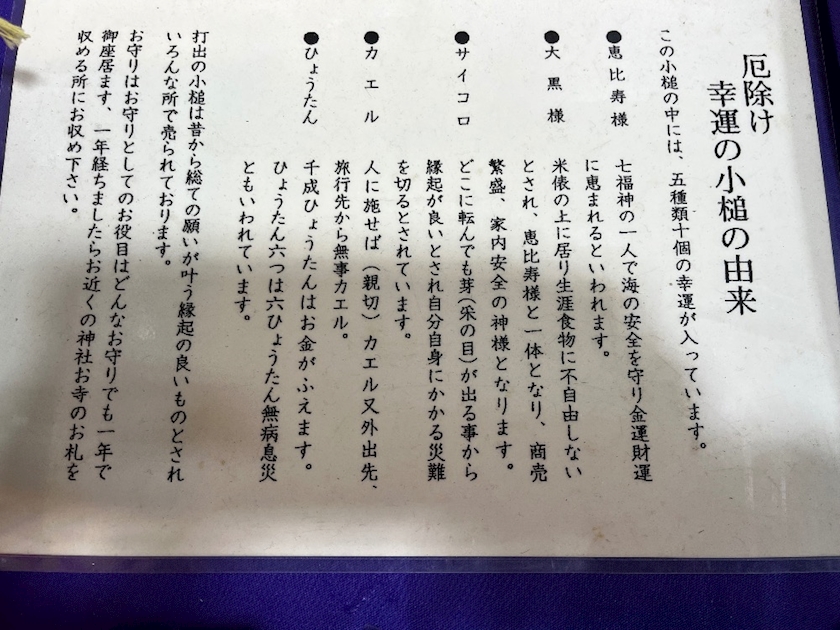 厄除け
幸運の小槌の由来
この小槌の中には、五種類十個の幸運が入っています。
●恵比寿様 七福神の一人で海の安全を守り金運財運
に恵まれるといわれます。
●大黒様 米俵の上に居り生涯食物に不自由しない
とされ、恵比寿様と一体となり、商売
繁盛、家内安全の神様となります。
●サイコロ どこに転んでも芽(采の目)が出る事から
縁起が良いとされ自分自身にかかる災難
を切るとされています。
●カエル 人に施せば(親切)カエル又外出先、
旅行先から無事カエル。
●ひょうたん 千成ひょうたんはお金がふえます。
ひょうたん六つは六ひょうたん無病息災
ともいわれています。
打出の小槌は昔から総ての願いが叶う縁起の良いものとされ
いろんな所で売られております。
お守りはお守りとしてのお役目はどんなお守りでも一年で
御座居ます、一年経ちましたらお近くの神社お寺のお札を
収める所にお収め下さい。